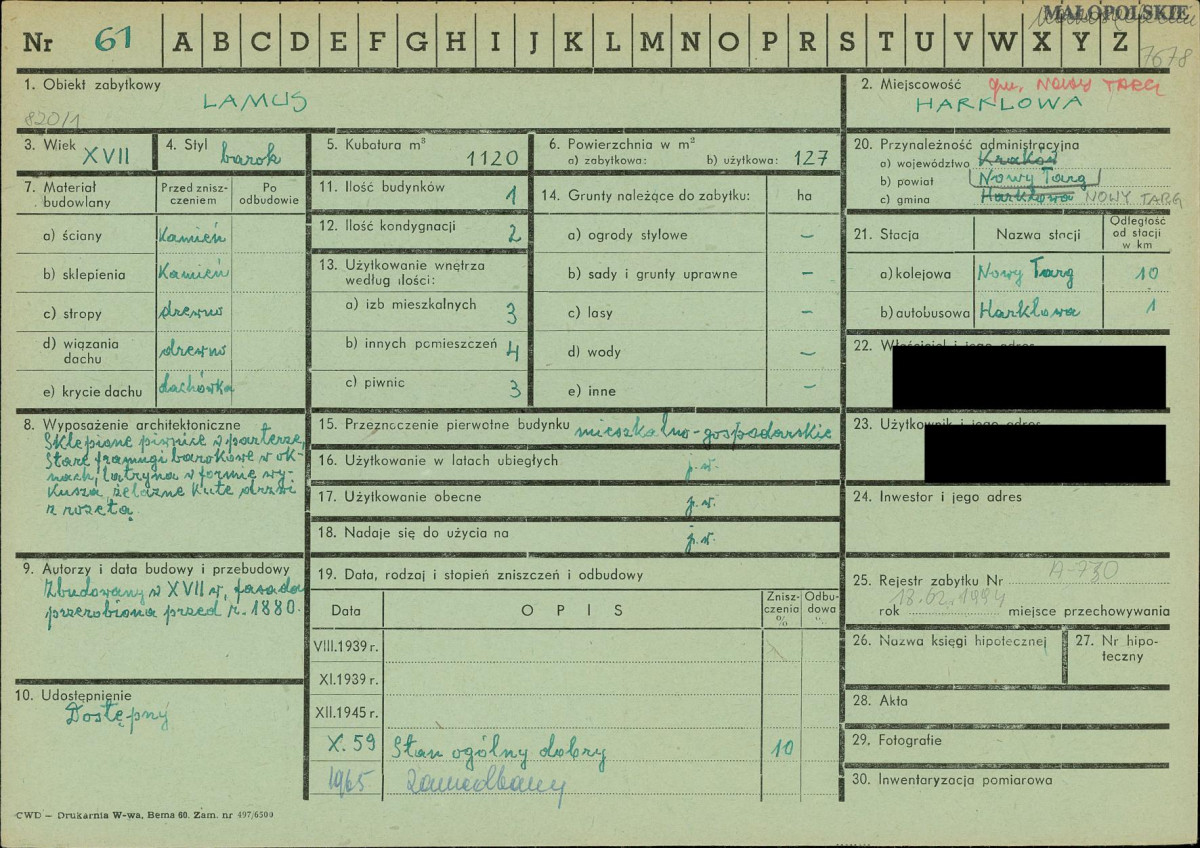 MAŁOPOLSKIE
Nr 61 A B C D E F G H I J K L M N O P R S T U V W X Y Z
7678
1. Obiekt zabytkowy
LAMUS
820/1
2. Miejscowość gm. NOWY TARG
HARKLOWA
3. Wiek XVII
4. Styl barok
5. Kubatura m³ 1120
6. Powierzchnia w m²
a) zabytkowa: b) użytkowa: 127
20. Przynależność administracyjna
a) województwo Kraków
b) powiat Nowy Targ
c) gmina Harklowa NOWY TARG
7. Materiał budowlany
Przed zniszczeniem
Po odbudowie
a) ściany Kamień
b) sklepienia Kamień
c) stropy drewno
d) wiązania dachu drewno
e) krycie dachu dachówka
11. Ilość budynków 1
12. Ilość kondygnacji 2
13. Użytkowanie wnętrza
według ilości:
a) izb mieszkalnych 3
b) innych pomieszczeń 4
c) piwnic 3
14. Grunty należące do zabytku: ha
a) ogrody stylowe –
b) sady i grunty uprawne –
c) lasy –
d) wody –
e) inne –
21. Stacja Nazwa stacji Odległość od stacji w km
a) kolejowa Nowy Targ 10
b) autobusowa Harklowa 1
22. Właściciel i jego adres
23. Użytkownik i jego adres
24. Inwestor i jego adres
8. Wyposażenie architektoniczne
Sklepione piwnice w parterze,
Stare framugi barokowe w ok-
nach, latryna w formie wy-
kusza, żelazne kute drzwi
z rozetą.
15. Przeznaczenie pierwotne budynku mieszkalno-gospodarskie
16. Użytkowanie w latach ubiegłych j.w.
17. Użytkowanie obecne j.w.
18. Nadaje się do użycia na j.w.
9. Autorzy i data budowy i przebudowy
Zbudowany w XVII w, fasada
przerobiona przed r. 1880.
10. Udostępnienie
Dostępny
19. Data, rodzaj i stopień zniszczeń i odbudowy
Data OPIS Zniszczenia % Odbudowa %
VIII.1939 r.
XI.1939 r.
XII.1945 r.
X. 59 Stan ogólny dobry 10
1965 zaniedbany
25. Rejestr zabytku Nr A-730
rok 18.02.1994 miejsce przechowywania
26. Nazwa księgi hipotecznej
27. Nr hipo-
teczny
28. Akta
29. Fotografie
30. Inwentaryzacja pomiarowa
CWD – Drukarnia W-wa, Bema 60. Zam. nr 497/6500